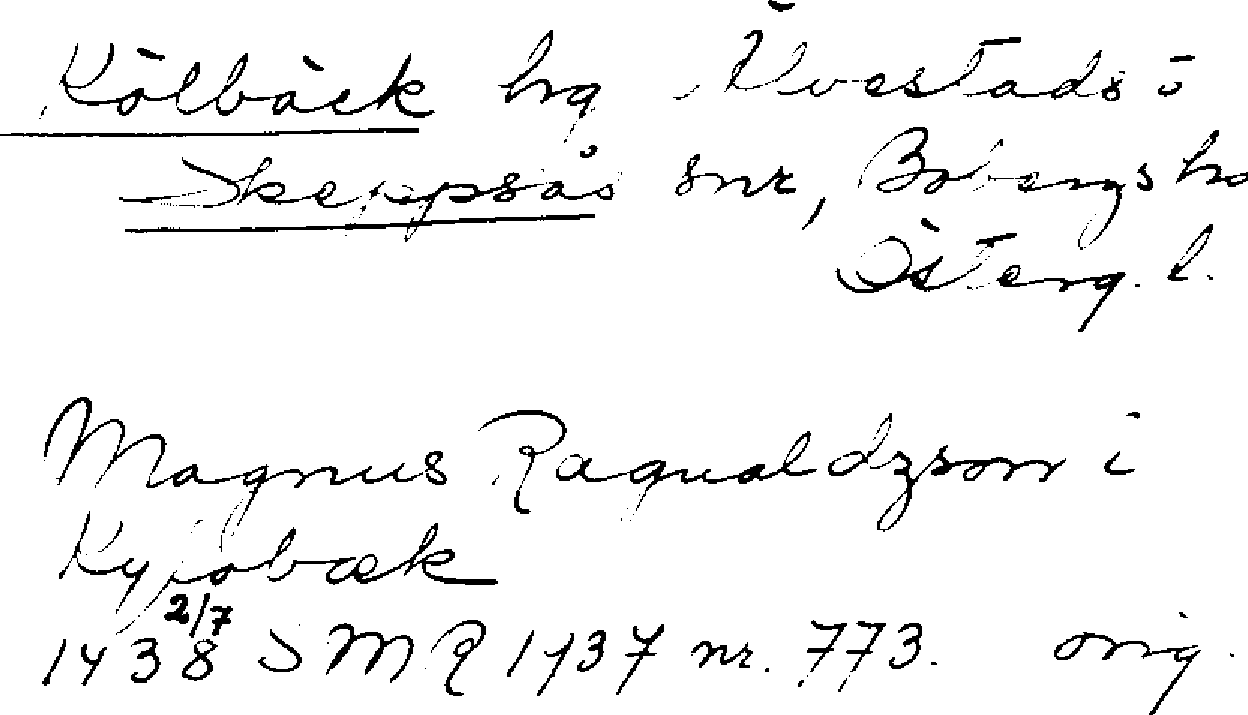 Kölbäck hg Älvestads o
Skeppsås snr, Bobergs hd
Österg. l.
Magnus Raqualdzson i
Kypobæk
1438 2/7 SMR 1437 nr. 773. orig.